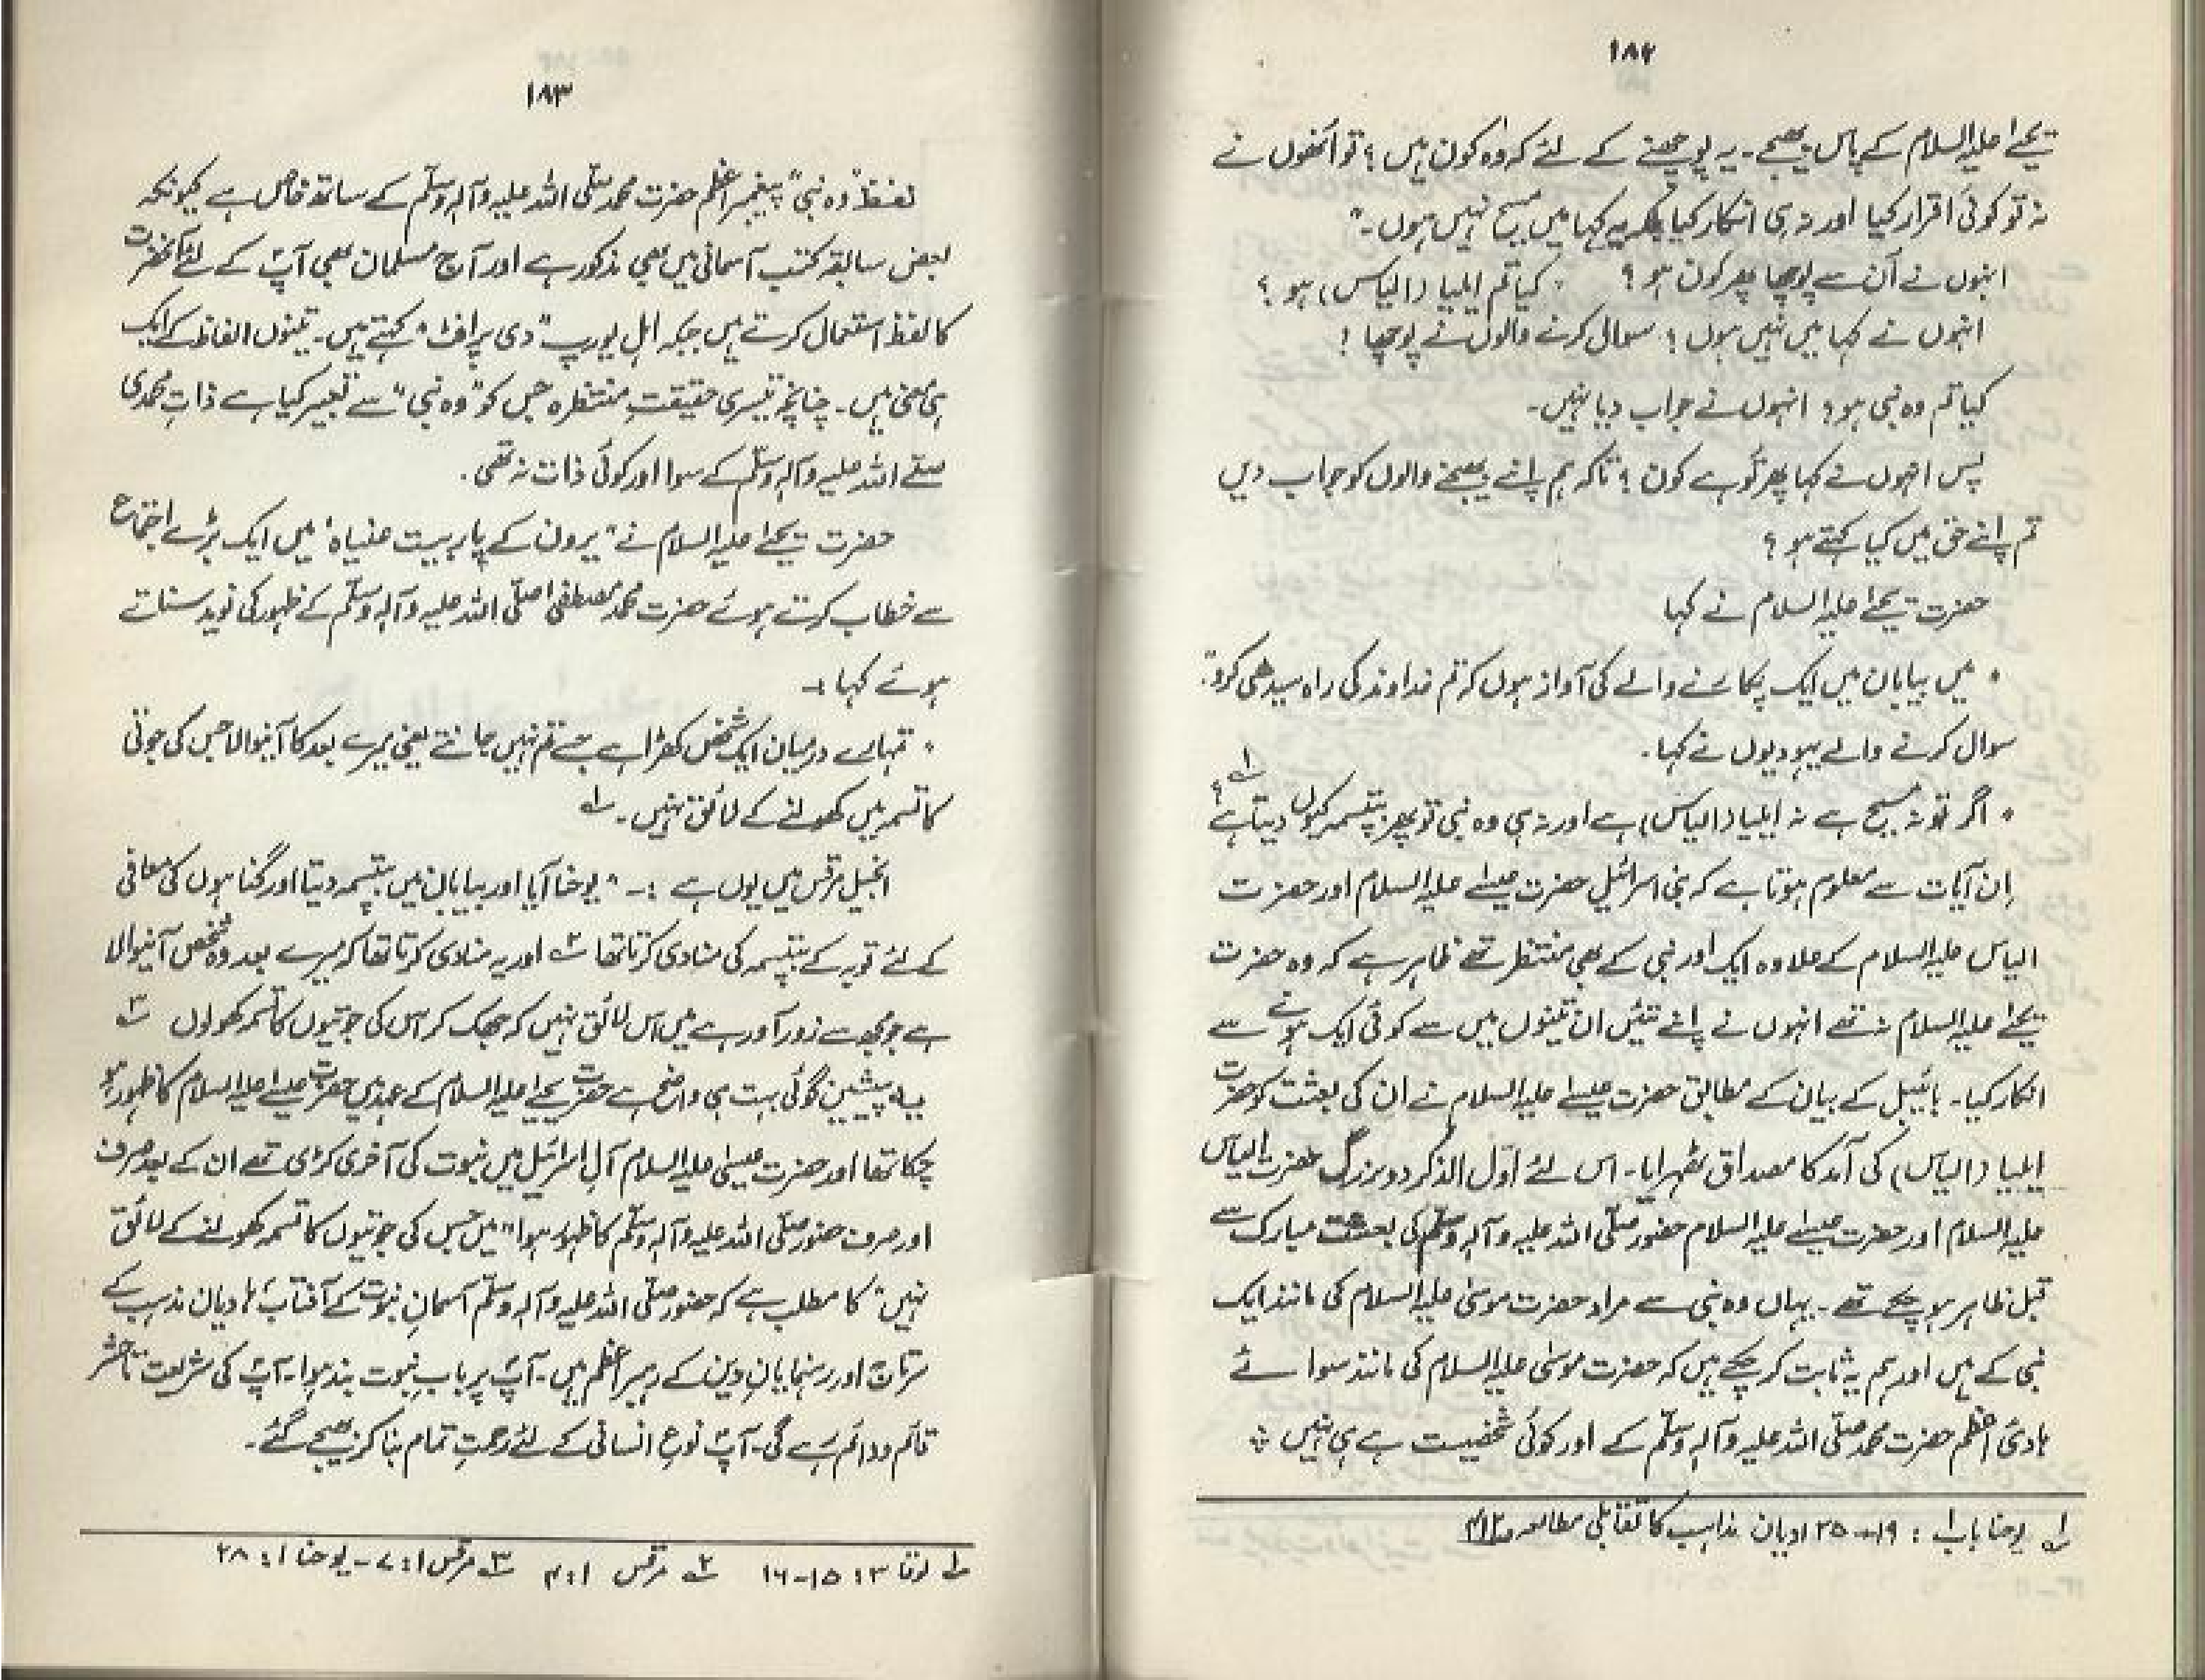 ۱۸۲
یحیےٰ علیہ السلام کے پاس بھیجے۔ یہ پوچھنے کے لئے کہ وہ کون ہیں؟ تو انھوں نے
نہ تو کوئی اقرار کیا اور نہ ہی انکار کیا بلکہ یہ کہا میں مسیح نہیں ہوں۔"
انہوں نے اُن سے پوچھا پھر کون ہو؟ کیا تم ایلیا (الیاس) ہو؟
انہوں نے کہا میں نہیں ہوں؛ سوال کرنے والوں نے پوچھا!
کیا تم وہ نبی ہو؟ انہوں نے جواب دیا نہیں۔
پس انہوں نے کہا پھر تُو ہے کون؟ تاکہ ہم اپنے بھیجنے والوں کو جواب دیں
تم اپنے حق میں کیا کہتے ہو؟
حضرت یحیےٰ علیہ السلام نے کہا
"میں بیابان میں ایک پکارنے والے کی آواز ہوں کہ تم خداوند کی راہ سیدھی کرو"۔
سوال کرنے والے یہودیوں نے کہا۔
"اگر تو نہ مسیح ہے نہ ایلیا (الیاس) ہے اور نہ ہی وہ نبی تو پھر بپتسمہ کیوں دیتا ہے؟ ۱؎
اِن آیات سے معلوم ہوتا ہے کہ بنی اسرائیل حضرت عیسےٰ علیہ السلام اور حضرت
الیاس علیہ السلام کے علاوہ ایک اور نبی کے بھی منتظر تھے ظاہر ہے کہ وہ حضرت
یحیےٰ علیہ السلام نہ تھے انہوں نے اپنے تئیں ان تینوں میں سے کوئی ایک ہونے سے
انکار کیا۔ بائیبل کے بیان کے مطابق حضرت عیسےٰ علیہ السلام نے ان کی بعثت کو حضرت
ایلیا (الیاس) کی آمد کا مصداق ٹھہرایا۔ اس لئے اوّل الذکر دو بزرگ حضرت الیاس
علیہ السلام اور حضرت عیسےٰ علیہ السلام حضور صلّی اللہ علیہ وآلہ وسلّم کی بعثت مبارک سے
قبل ظاہر ہو چکے تھے۔ یہاں وہ نبی سے مراد حضرت موسیٰ علیہ السلام کی مانند ایک
نبی کے ہیں اور ہم یہ ثابت کر چکے ہیں کہ حضرت موسیٰ علیہ السلام کی مانند سوائے
ہادی اعظم حضرت محمد صلّی اللہ علیہ وآلہ وسلّم کے اور کوئی شخصیت ہے ہی نہیں ؛
۱؎ یوحنا باب ۱ : ۱۹-۲۵ ادیان مذاہب کا تقابلی مطالعہ
۱۸۳
لفظ "وہ نبی" پیغمبر اعظم حضرت محمد صلّی اللہ علیہ وآلہ وسلّم کے ساتھ خاص ہے کیونکہ
بعض سابقہ کتب آسمانی میں بھی مذکور ہے اور آج مسلمان بھی آپؐ کے لئے آنحضرت
کا لفظ استعمال کرتے ہیں جبکہ اہل یورپ "دی پرافٹ" کہتے ہیں۔ تینوں الفاظ کے ایک
ہی معنی ہیں۔ چنانچہ تیسری حقیقتِ منتظرہ جس کو "وہ نبی" سے تعبیر کیا ہے ذاتِ محمدی
صلّے اللہ علیہ وآلہ وسلّم کے سوا اور کوئی ذات نہ تھی۔
حضرت یحیےٰ علیہ السلام نے "یردن کے پار بیت عنیاہ" میں ایک بڑے اجتماع
سے خطاب کرتے ہوئے حضرت محمد مصطفیٰ صلّی اللہ علیہ وآلہ وسلّم کے ظہور کی نوید سناتے
ہوئے کہا :-
"تمہارے درمیان ایک شخص کھڑا ہے جسے تم نہیں جانتے یعنی میرے بعد کا آنیوالا جس کی جوتی
کا تسمہ میں کھولنے کے لائق نہیں۔ ۱؎
انجیل مرقس میں یوں ہے :- "یوحنا آیا اور بیابان میں بپتسمہ دیتا اور گناہوں کی معافی
کے لئے توبہ کے بپتسمہ کی منادی کرتا تھا ۲؎ اور یہ منادی کرتا تھا کہ میرے بعد وہ شخص آنیوالا
ہے جو مجھ سے زور آور ہے میں اس لائق نہیں کہ جھک کر اس کی جوتیوں کا تسمہ کھولوں ۳؎
یہ پیشین گوئی بہت ہی واضح ہے حضرت یحیےٰ علیہ السلام کے عہد میں حضرت عیسےٰ علیہ السلام کا ظہور ہو
چکا تھا اور حضرت عیسیٰ علیہ السلام آلِ اسرائیل میں نبوت کی آخری کڑی تھے ان کے بعد صرف
اور صرف حضور صلّی اللہ علیہ وآلہ وسلّم کا ظہور ہوا "میں جس کی جوتیوں کا تسمہ کھولنے کے لائق
نہیں" کا مطلب ہے کہ حضور صلّی اللہ علیہ وآلہ وسلّم آسمانِ نبوت کے آفتاب، ہادیان مذہب کے
سرتاج اور رہنمایانِ دین کے رہبر اعظم ہیں۔ آپؐ پر بابِ نبوت بند ہوا۔ آپؐ کی شریعت تا حشر
قائم و دائم رہے گی۔ آپؐ نوعِ انسانی کے لئے رحمتِ تمام بنا کر بھیجے گئے۔
۱؎ لوقا ۳: ۱۵-۱۶ ۲؎ مرقس ۱: ۴ ۳؎ مرقس ۱: ۷ - یوحنا ۱: ۲۸